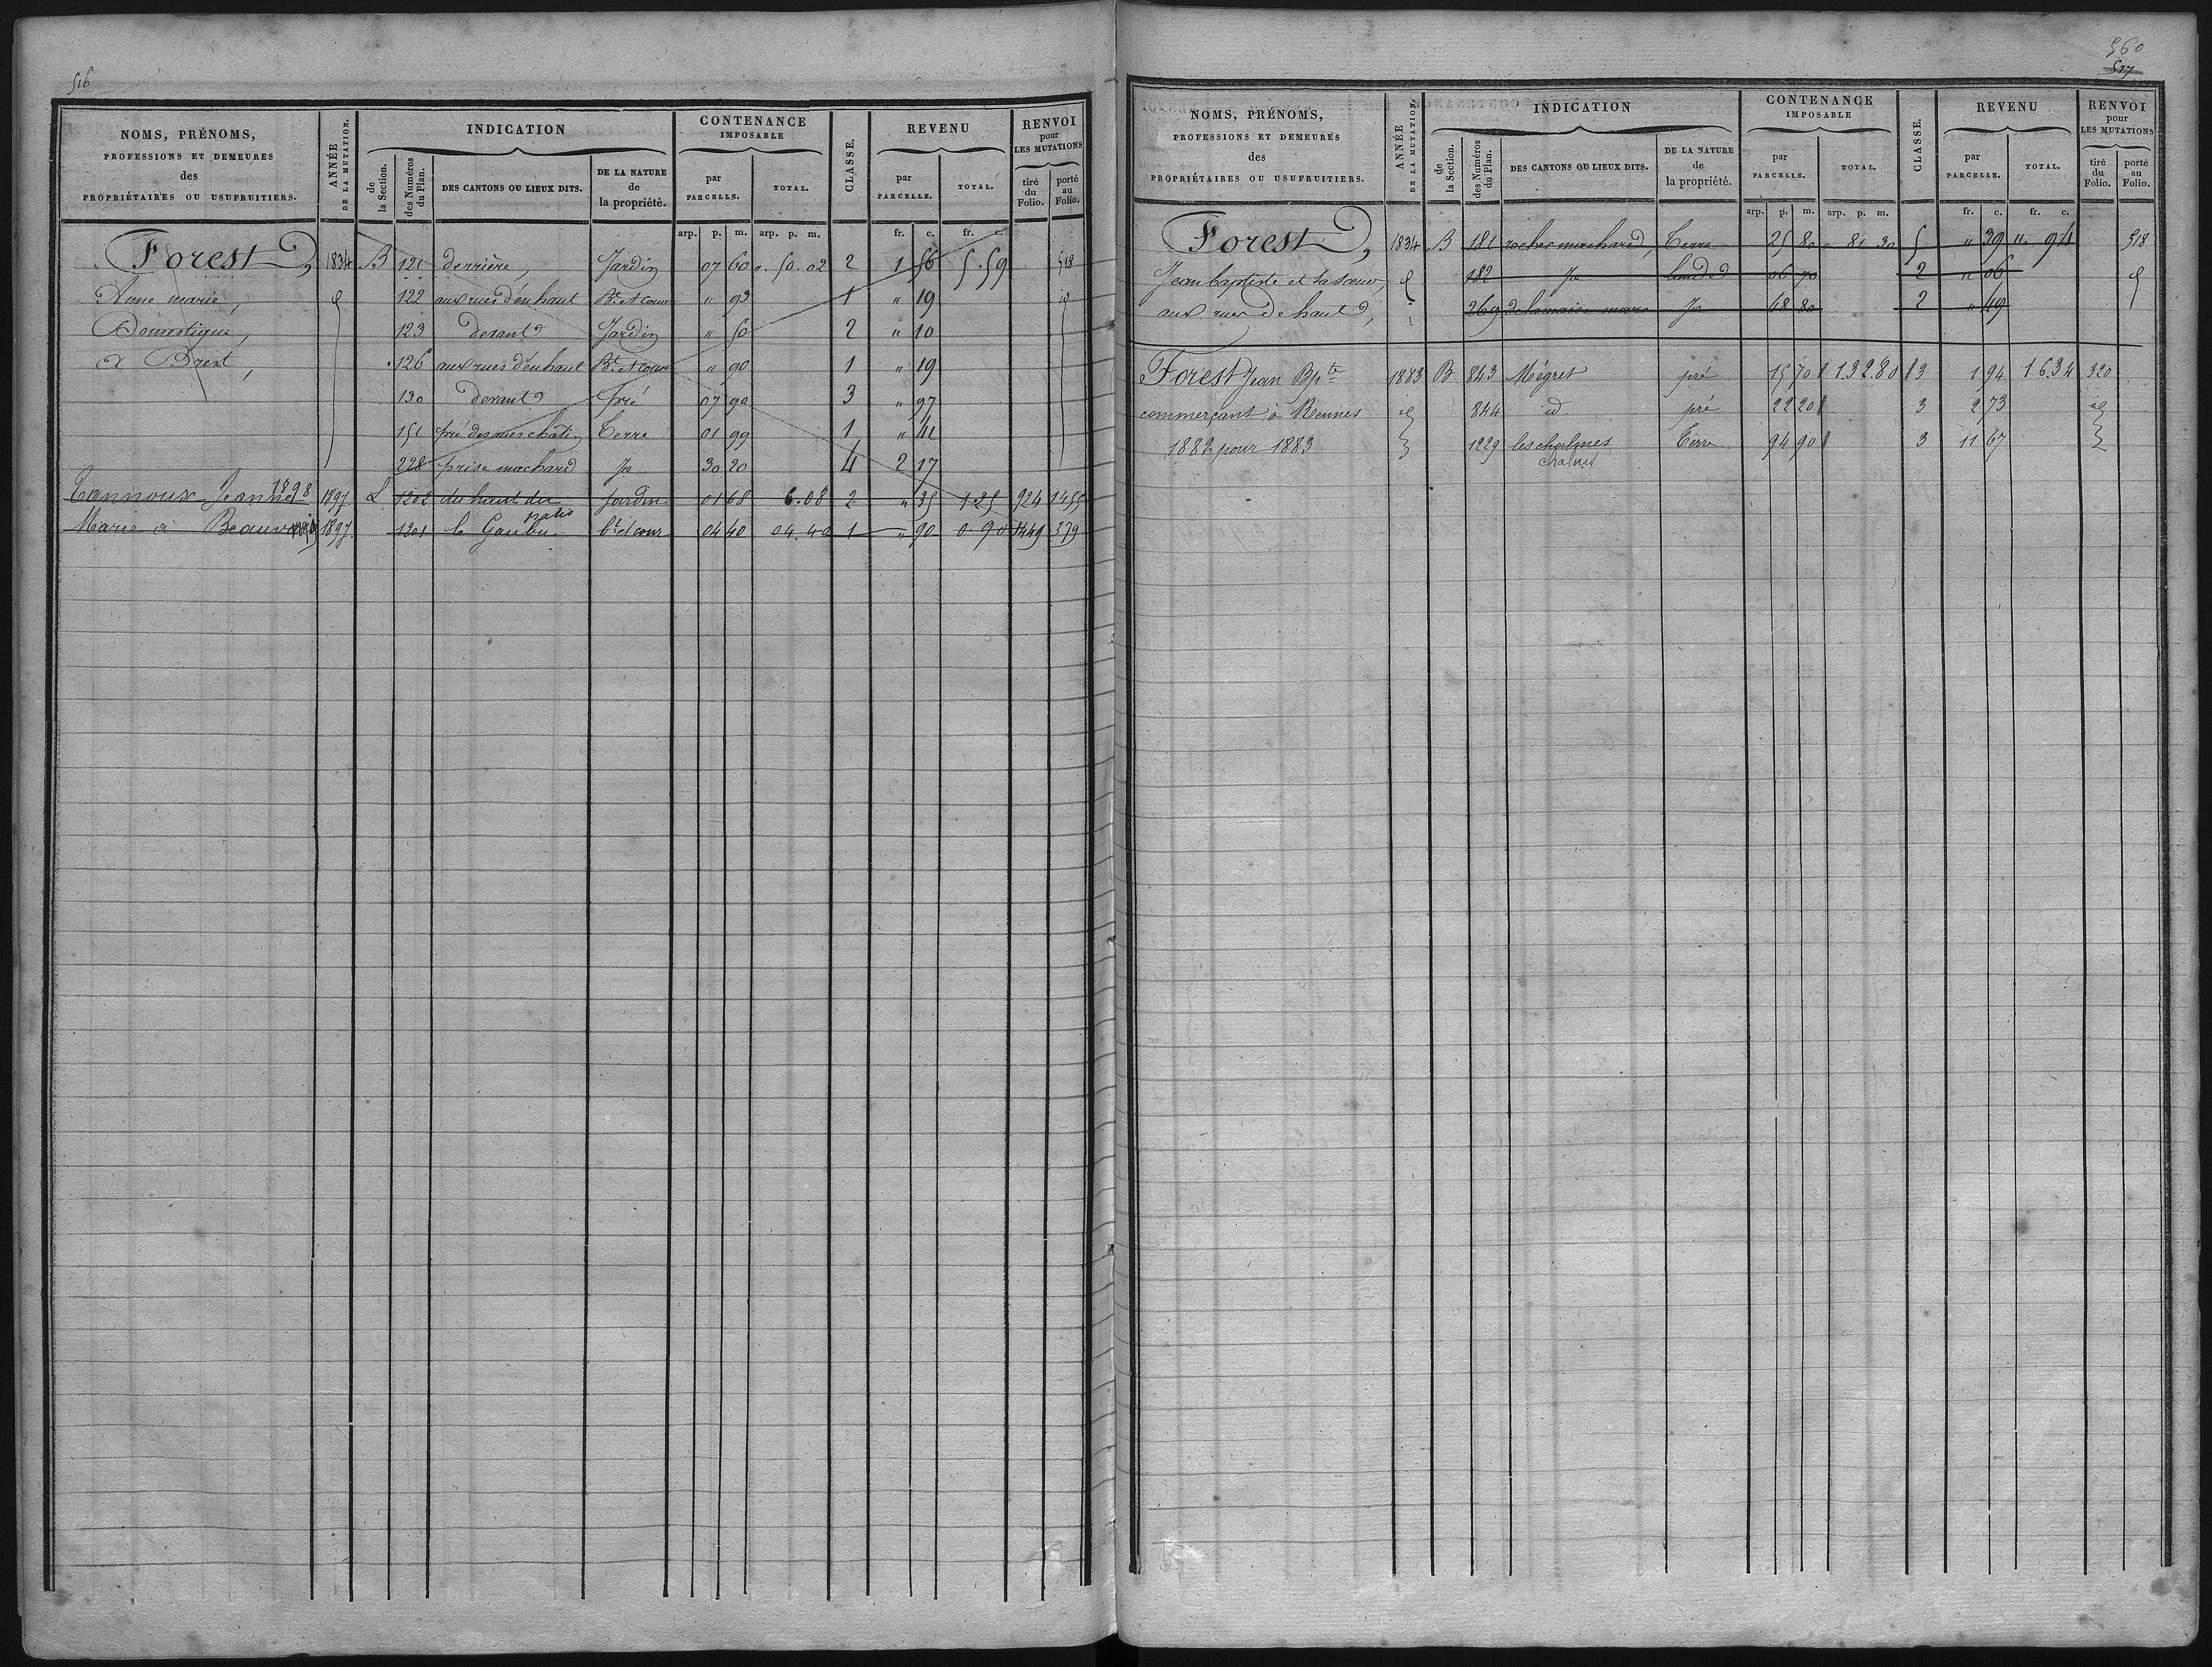 516
NOMS, PRÉNOMS, PROFESSIONS ET DEMEURES des PROPRIÉTAIRES OU USUFRUITIERS.
ANNÉE DE LA MUTATION.
INDICATION
de la Section.
des Numéros du Plan.
DES CANTONS OU LIEUX DITS.
DE LA NATURE de la propriété.
CONTENANCE IMPOSABLE
par PARCELLE.
TOTAL.
CLASSE.
REVENU
par PARCELLE.
TOTAL.
RENVOI pour LES MUTATIONS
tiré du Folio.
porté au Folio.
arp. p. m. arp. p. m. fr. c. fr. c.
Forest, 1834 B 121 derrière, Jardin 07 60 " 50. 02 2 1 56 5. 59 518
Anne marie, 122 aux rues d'en haut Bt. et cour " 93 1 " 19 id
Domestique, 123 devant Jardin " 50 2 " 10
à Brest, 126 aux rues d'en haut Bt. et cour " 90 1 " 19
130 devant pré 07 90 3 " 97
151 pré des mes Terre 01 99 1 " 41
228 prise machard Jo 30 20 4 2 17
1898
Tannoux Jeanne 1897 L 1202 du haut du patis jardin 01 68 6.08 2 " 35 1.25 924 1455
Marie à 1897 1201 le bt et cour 04 40 04.40 1 " 90 0.90 1449 379
560
517
NOMS, PRÉNOMS, PROFESSIONS ET DEMEURES des PROPRIÉTAIRES OU USUFRUITIERS.
ANNÉE DE LA MUTATION.
INDICATION
de la Section.
des Numéros du Plan.
DES CANTONS OU LIEUX DITS.
DE LA NATURE de la propriété.
CONTENANCE IMPOSABLE
par PARCELLE.
TOTAL.
CLASSE.
REVENU
par PARCELLE.
TOTAL.
RENVOI pour LES MUTATIONS
tiré du Folio.
porté au Folio.
arp. p. m. arp. p. m. fr. c. fr. c.
Forest, 1834 B 181 rocher machard, Terre 25 80 " 81 30 5 " 39 ". 94 518
Jean baptiste et sa soeur, 182 Jo lande 06 70 2 " 06
aux rues de haut, 269 Jo 48 80 2 " 49
Forest Jean Bpte 1883 B 843 Mégret pré 15 70 1.32.80 3 1 94 16.34 320
commerçant à Rennes id 844 id pré 22 20 3 2 73 id
1882 pour 1883 1229 les chalmes Terre 94 90 3 11 67